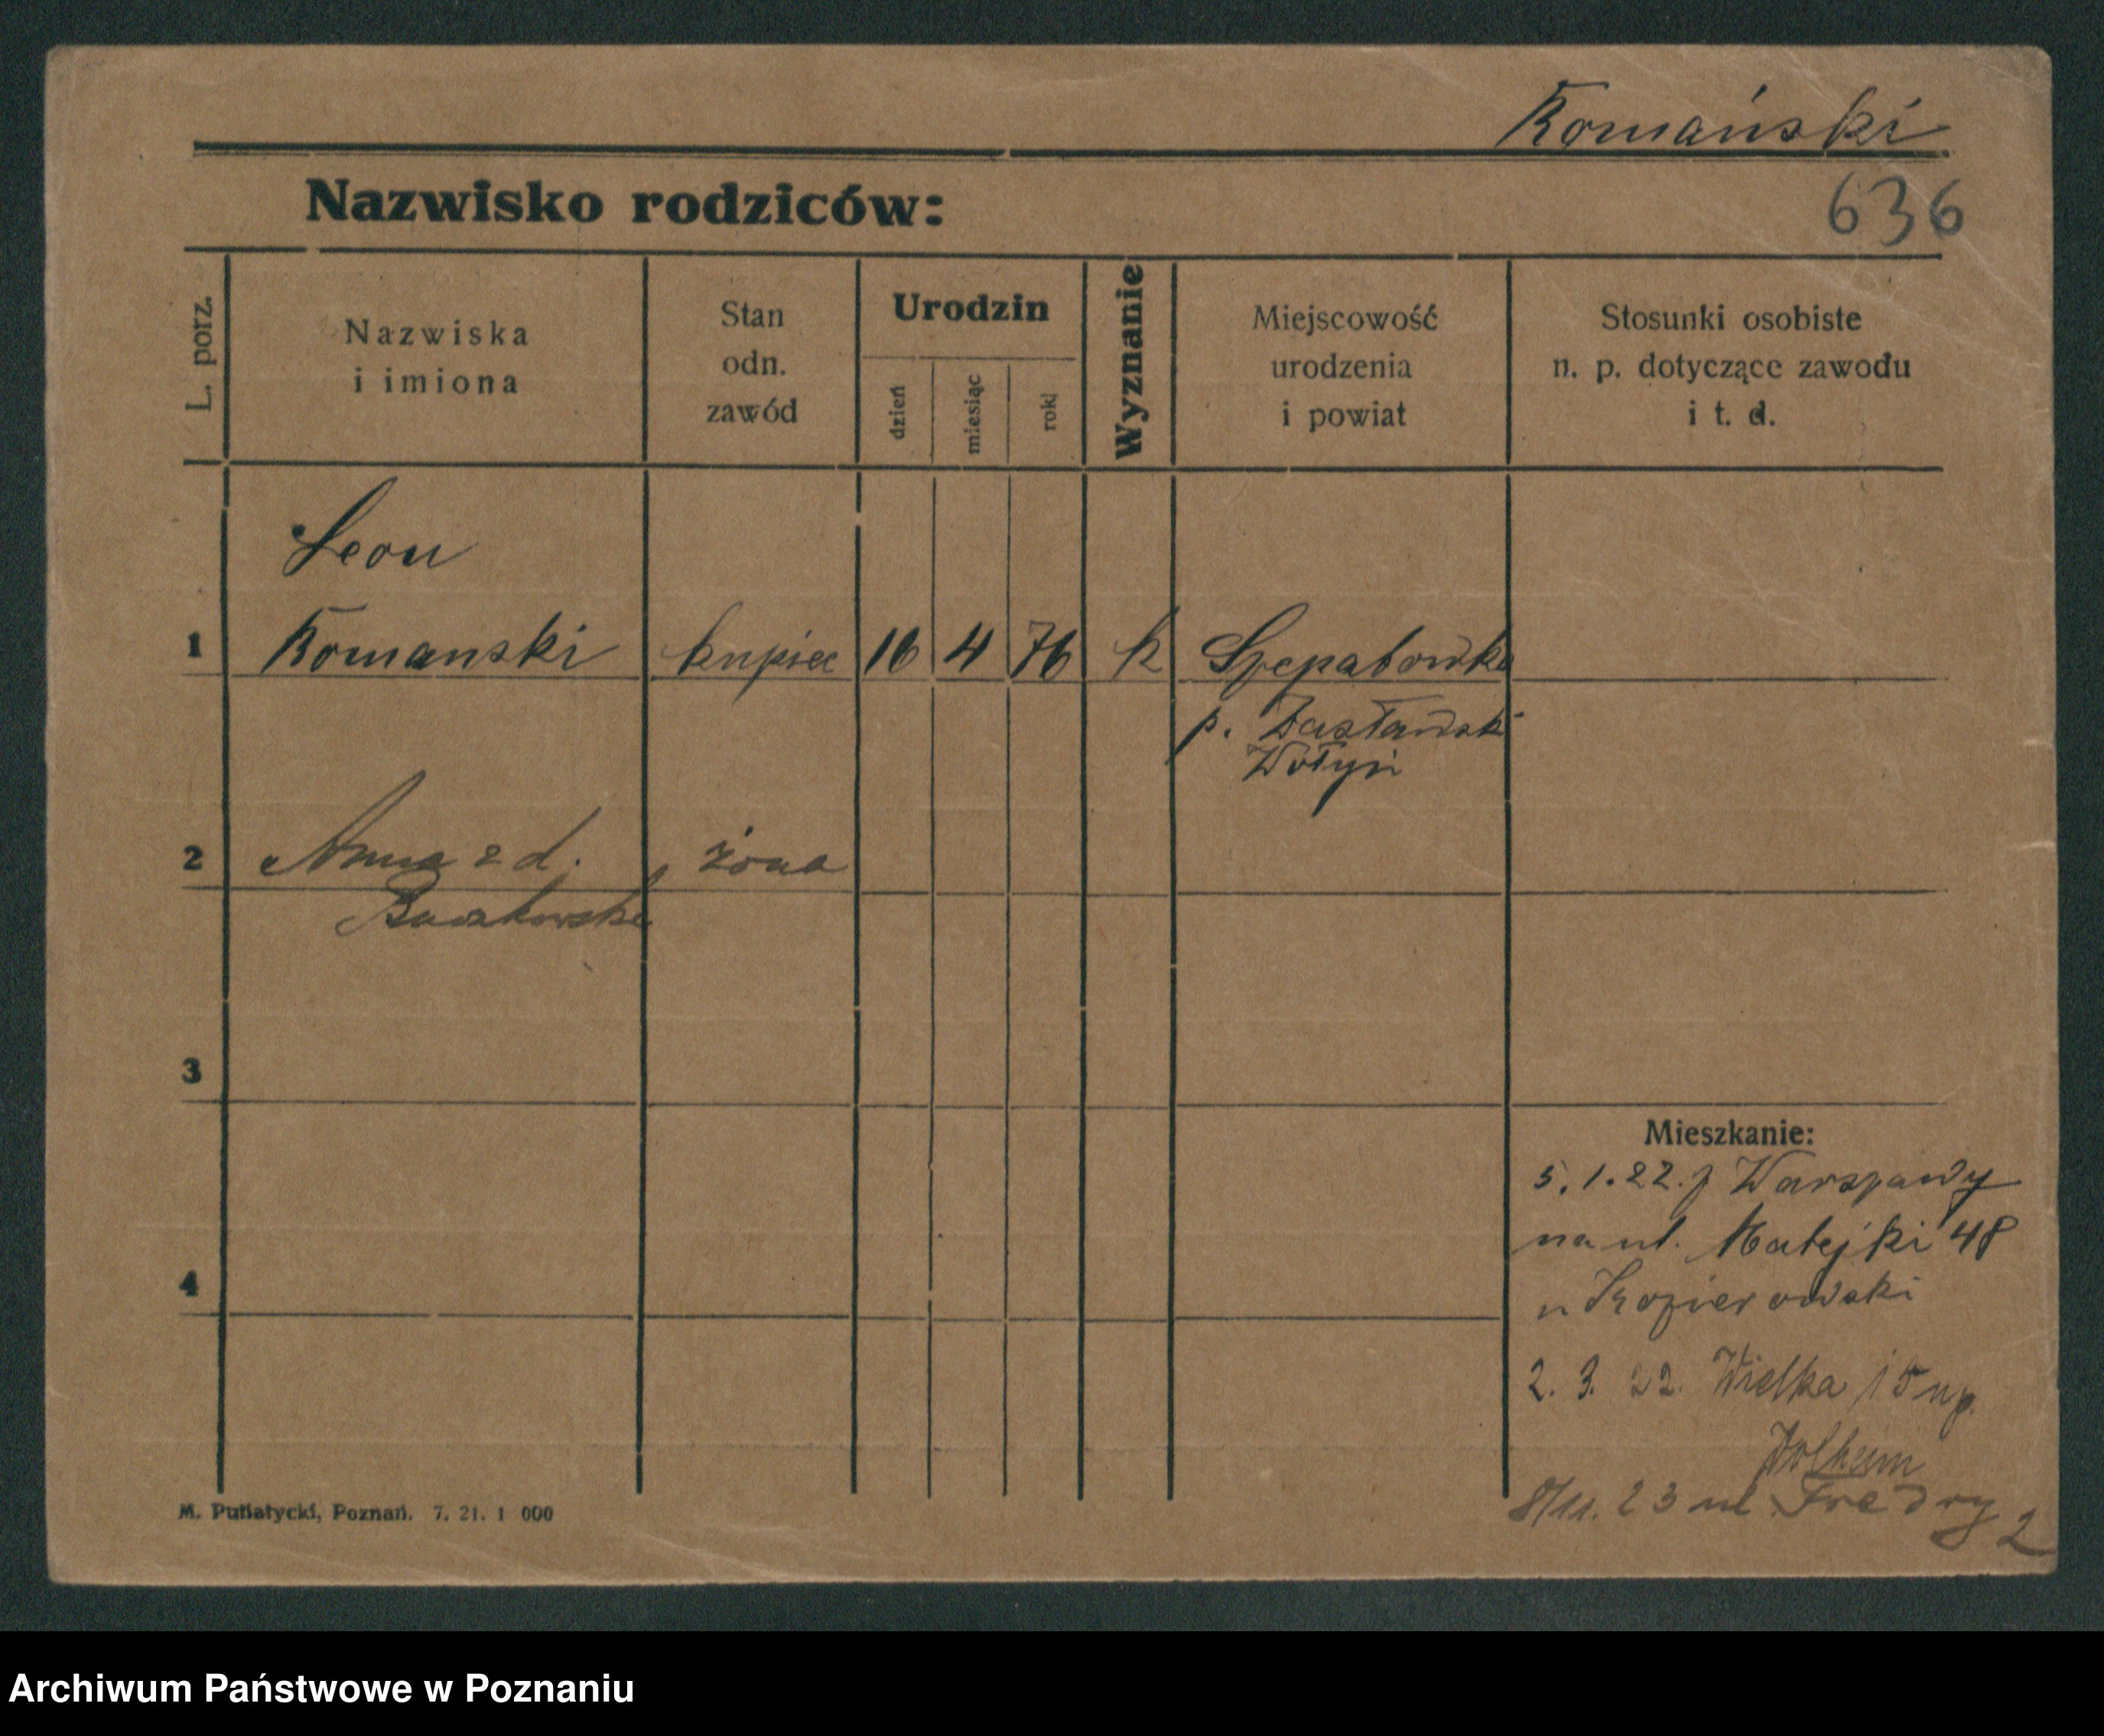 Romański
Nazwisko rodziców:
636
L. porz.
Nazwiska
i imiona
Stan
odn.
zawód
Urodzin
dzień
miesiąc
rok
Wyznanie
Miejscowość
urodzenia
i powiat
Stosunki osobiste
n. p. dotyczące zawodu
i t. d.
Leon
1 Romanski kupiec 16 4 76 k Szepatowka
p. Zasławski
Wołyń
2 Anna z d. żona
3
4
Mieszkanie:
5.1.22. z Warszawy
na ul. Matejki 48
u Kozierowski
2. 3. 22. Wielka 15 u p.
8/11. 23 ul Fredry 2
M. Putiatycki, Poznań. 7. 21. 1 000
Archiwum Państwowe w Poznaniu